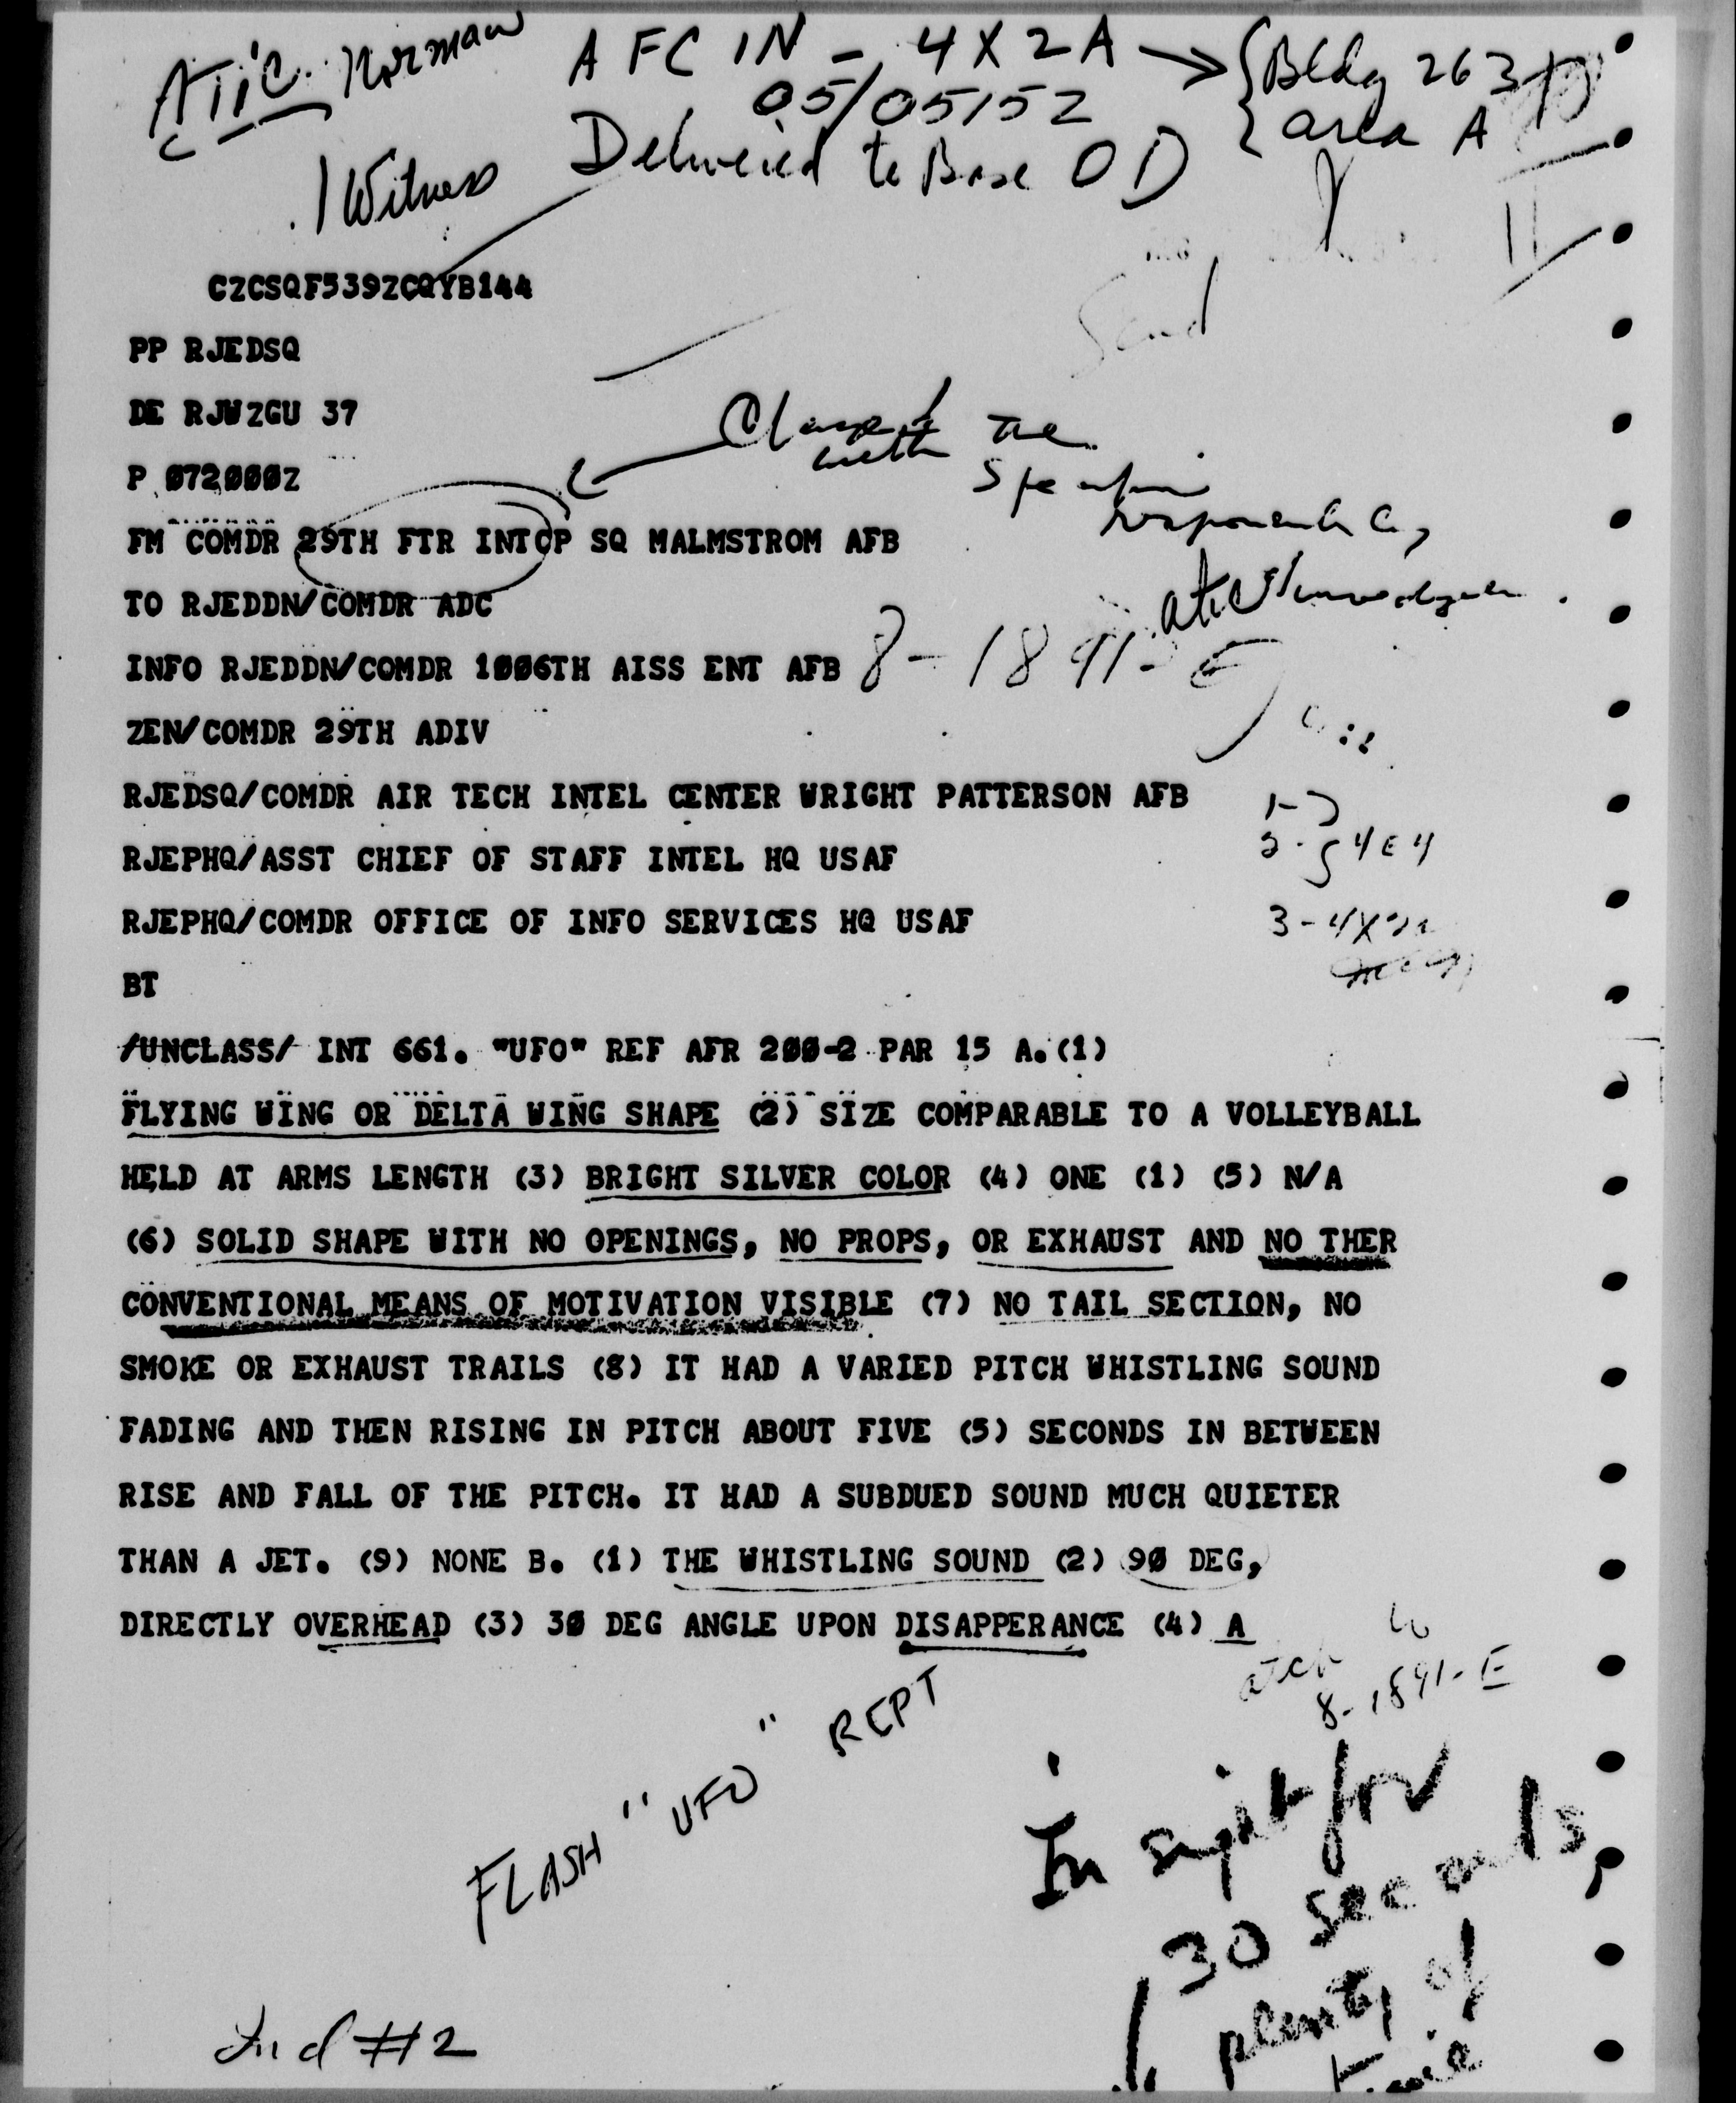 ATIC. Norman
AFCIN - 4X2A → Bldg 263
05/0515Z area A
1 Witness Delivered to Base OD
Send
CZCSQF539ZCQYB144
PP RJEDSQ
DE RJWZGU 37
P 072000Z
with the
FM COMDR 29TH FTR INTCP SQ MALMSTROM AFB
TO RJEDDN/COMDR ADC
INFO RJEDDN/COMDR 1006TH AISS ENT AFB 8-1891-E
ZEN/COMDR 29TH ADIV
RJEDSQ/COMDR AIR TECH INTEL CENTER WRIGHT PATTERSON AFB
RJEPHQ/ASST CHIEF OF STAFF INTEL HQ USAF
RJEPHQ/COMDR OFFICE OF INFO SERVICES HQ USAF
BT
/UNCLASS/ INT 661. "UFO" REF AFR 200-2 PAR 15 A.(1)
FLYING WING OR DELTA WING SHAPE (2) SIZE COMPARABLE TO A VOLLEYBALL
HELD AT ARMS LENGTH (3) BRIGHT SILVER COLOR (4) ONE (1) (5) N/A
(6) SOLID SHAPE WITH NO OPENINGS, NO PROPS, OR EXHAUST AND NO THER
CONVENTIONAL MEANS OF MOTIVATION VISIBLE (7) NO TAIL SECTION, NO
SMOKE OR EXHAUST TRAILS (8) IT HAD A VARIED PITCH WHISTLING SOUND
FADING AND THEN RISING IN PITCH ABOUT FIVE (5) SECONDS IN BETWEEN
RISE AND FALL OF THE PITCH. IT HAD A SUBDUED SOUND MUCH QUIETER
THAN A JET. (9) NONE B. (1) THE WHISTLING SOUND (2) 90 DEG,
DIRECTLY OVERHEAD (3) 30 DEG ANGLE UPON DISAPPERANCE (4) A
8-1891-E
FLASH "UFO" REPT
In sight for
30 seconds,
plenty of
time
Incl #2